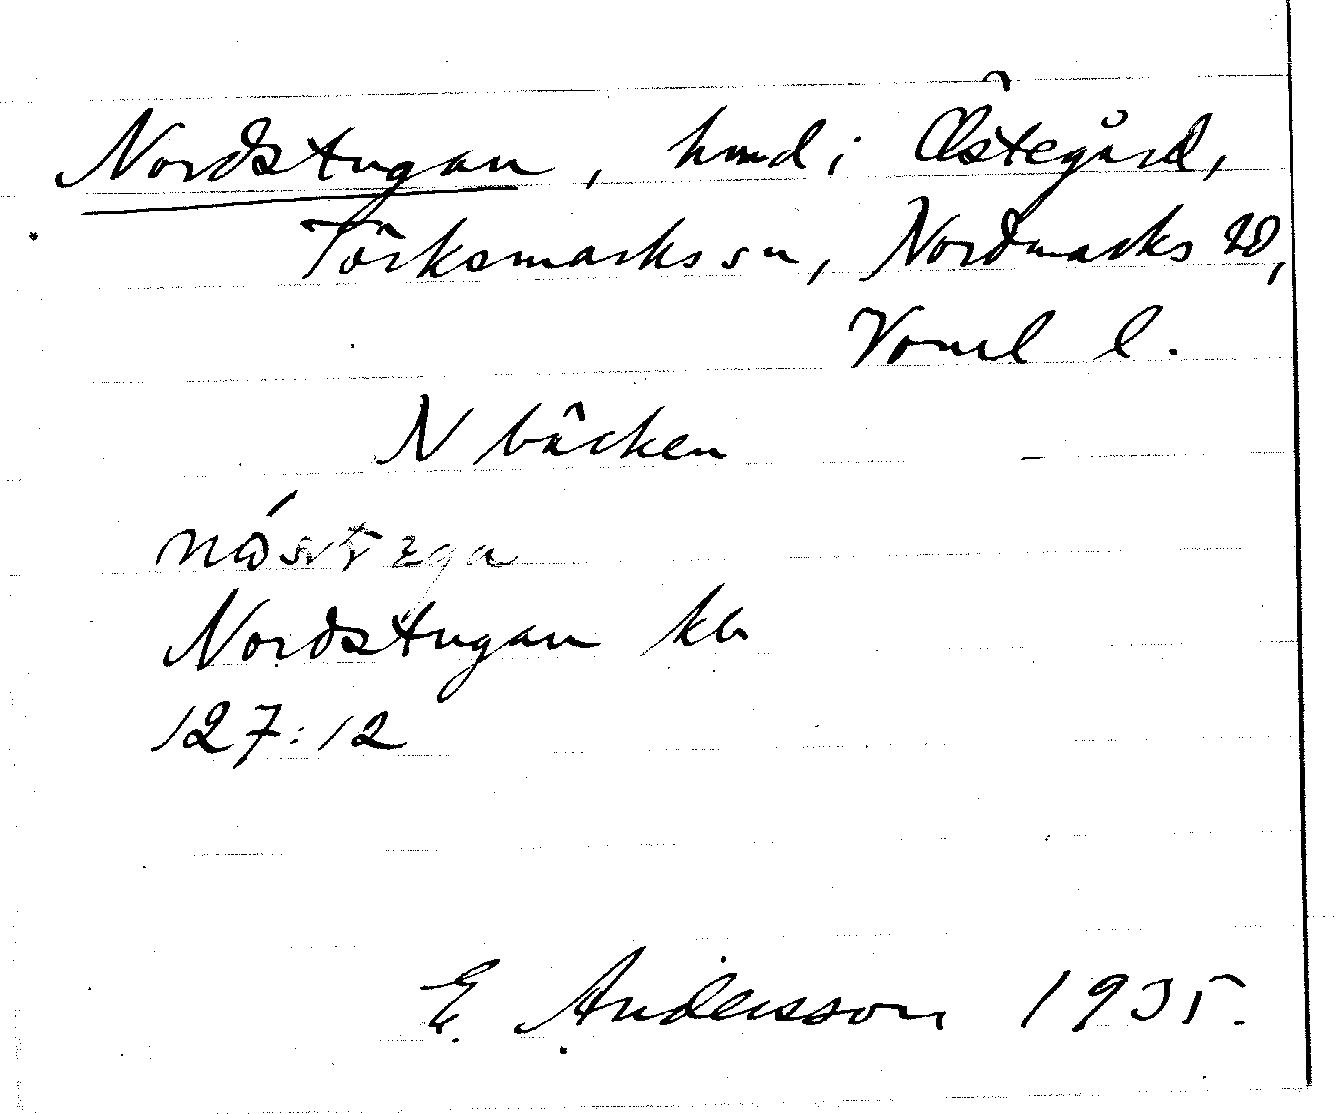 Nordstugan, hmd i Östegård,
Törksmarks sn, Nordmarks hd,
Värml l.
N bäcken
Nordstugan kb
127:12
E. Andersson 1935.